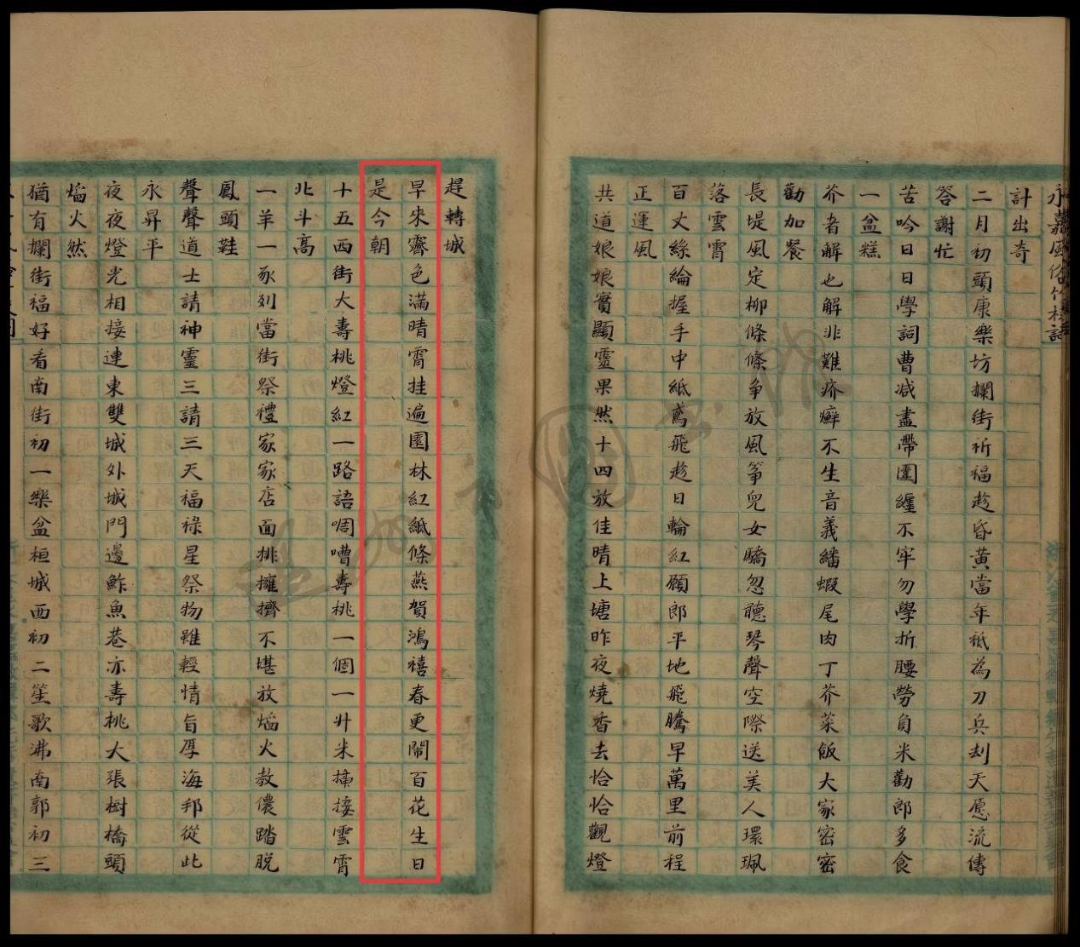 計出奇
二月初頭康樂坊攔街祈福趁昏黃當年祗為刀兵刦天愿流傳
答謝忙
苦吟日日學詞曹減盡帶圍纏不牢勿學折腰勞負米勸郎多食
一盆糕
芥者解也解非難疥癬不生音義繙蝦尾肉丁芥菜飯大家密密
勸加餐
長堤風定柳條條爭放風箏兒女嬌忽聽琴聲空際送美人環珮
落雲霄
百丈絲綸握手中紙鳶飛趁日輪紅願郎平地飛騰早萬里前程
正運風
共道娘娘實顯靈果然十四放佳晴上塘昨夜燒香去恰恰觀燈
趕轉城
早來霽色滿晴霄挂遍園林紅紙條燕賀鴻禧春更鬧百花生日
是今朝
十五西街大壽桃燈紅一路語啁嘈壽桃一個一廾米揷接雲霄
北斗高
一羊一豕列當街祭禮家家店面排擁擠不堪放焰火教儂踏脱
鳳頭鞋
聲聲道士請神靈三請三天福祿星祭物雖輕情旨厚海邦從此
永昇平
夜夜燈光相接連東雙城外城門邊鮓魚巷亦壽桃大張樹橋頭
焰火然
猶有攔街福好看南街初一樂盆桓城西初二笙歌沸南郭初三